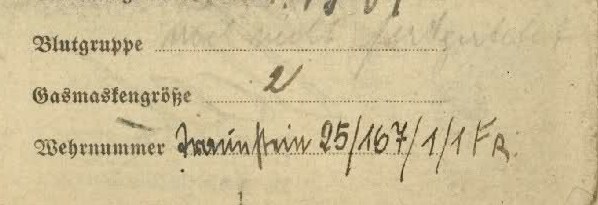 Blutgruppe
Gasmaskengröße 2
Wehrnummer Traunstein 25/167/1/1 FR.